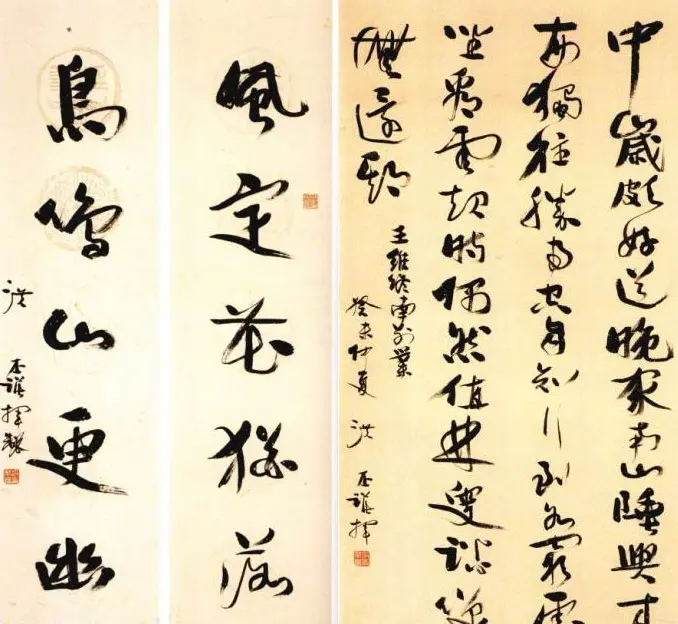 中歲頗好道晚家南山陲興來
每獨往勝事空自知行到水窮處
坐看雲起時偶然值林叟談笑
無還期
王維終南別業
癸未仲夏 洪丕謨揮
風定花猶落
鳥鳴山更幽
洪丕謨揮毫